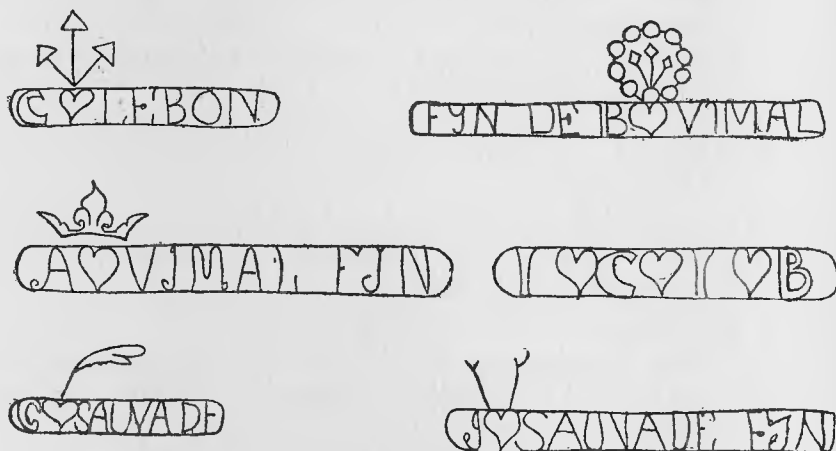 C♡LEBON
FYN DE B♡VIMAL
A♡VIMAL FIN
I♡C♡I♡B
C♡SAUVADE
J♡SAUVADE FIN